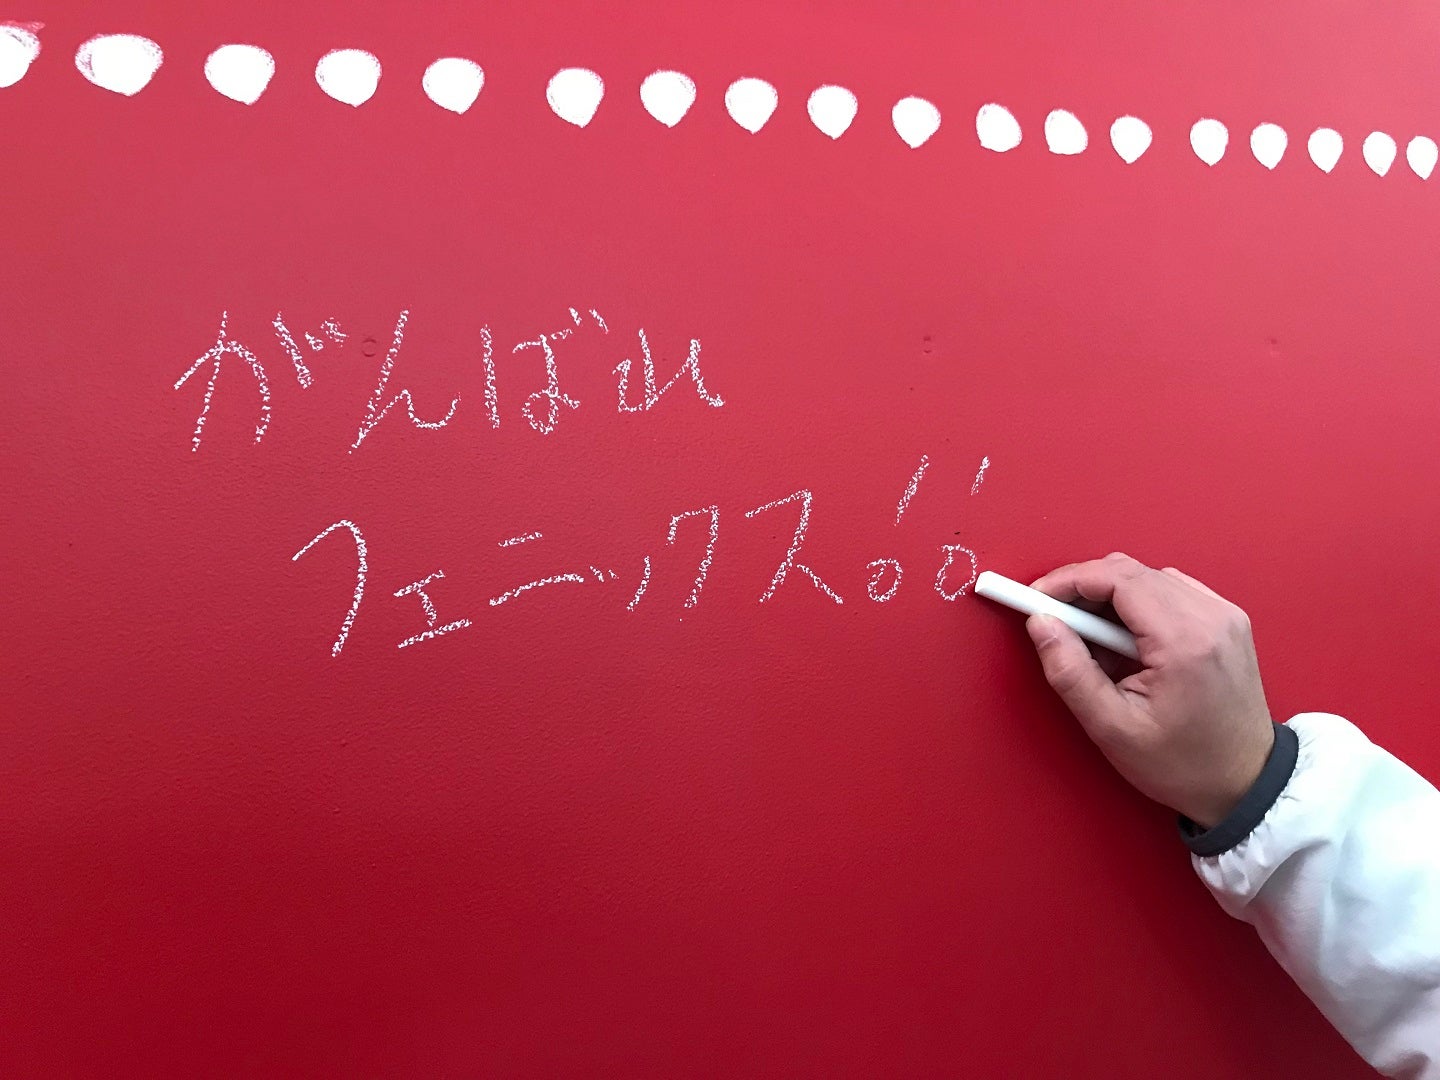 がんばれ
フェニックス!!